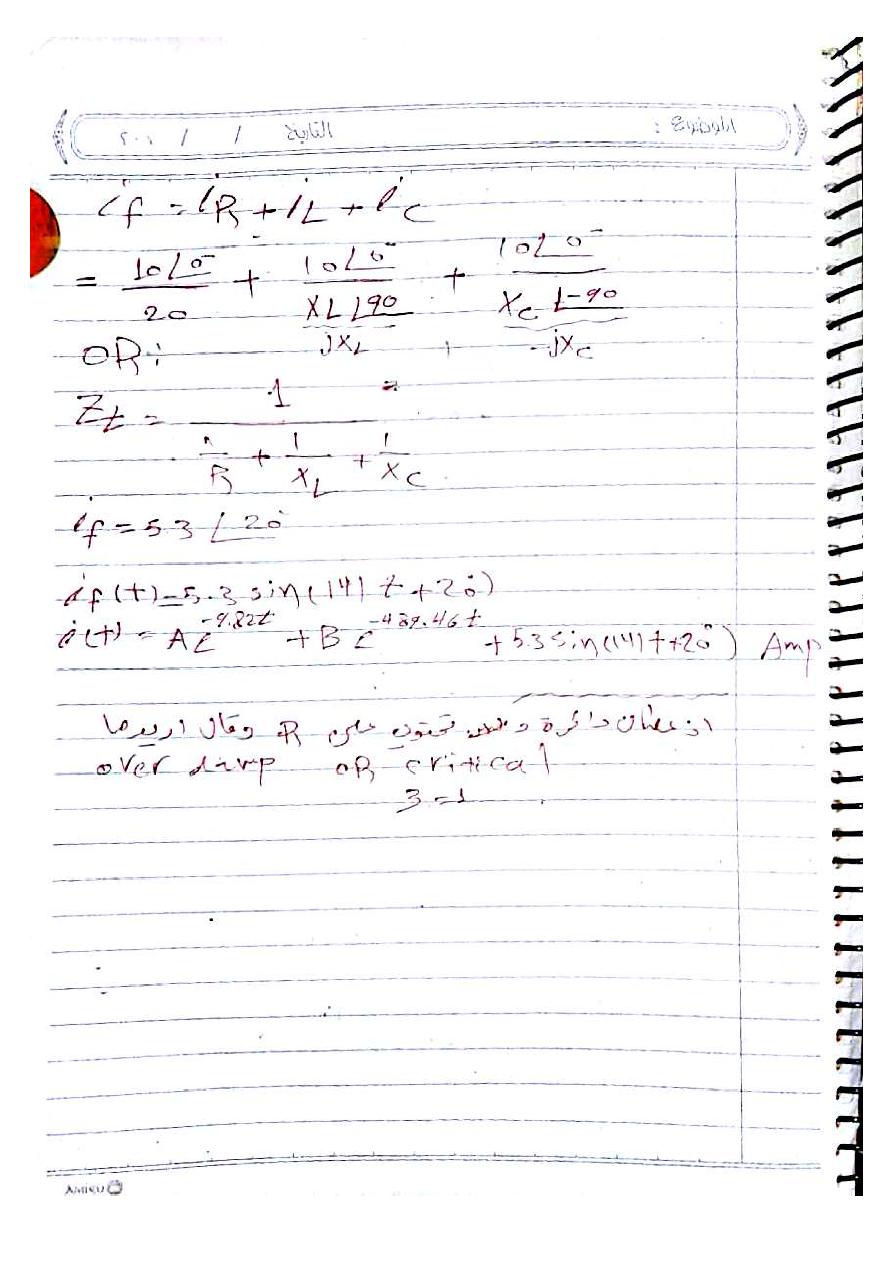 الموضوع : التاريخ / / ٢٠١
if = iR + iL + iC
= 10∠0° / 20 + 10∠0° / XL ∠90 + 10∠0° / XC ∠-90
OR: jXL -jXC
Zt = 1 / (1/R + 1/XL + 1/XC)
if = 5.3 ∠20°
if(t) = 5.3 sin(141 t + 20°)
i(t) = A e^-9.82t + B e^-489.46t + 5.3 sin(141 t + 20°) Amp
دائرة تحتوي على R وقال اريدها
over damp OR critical
3 = 1
AMIRU